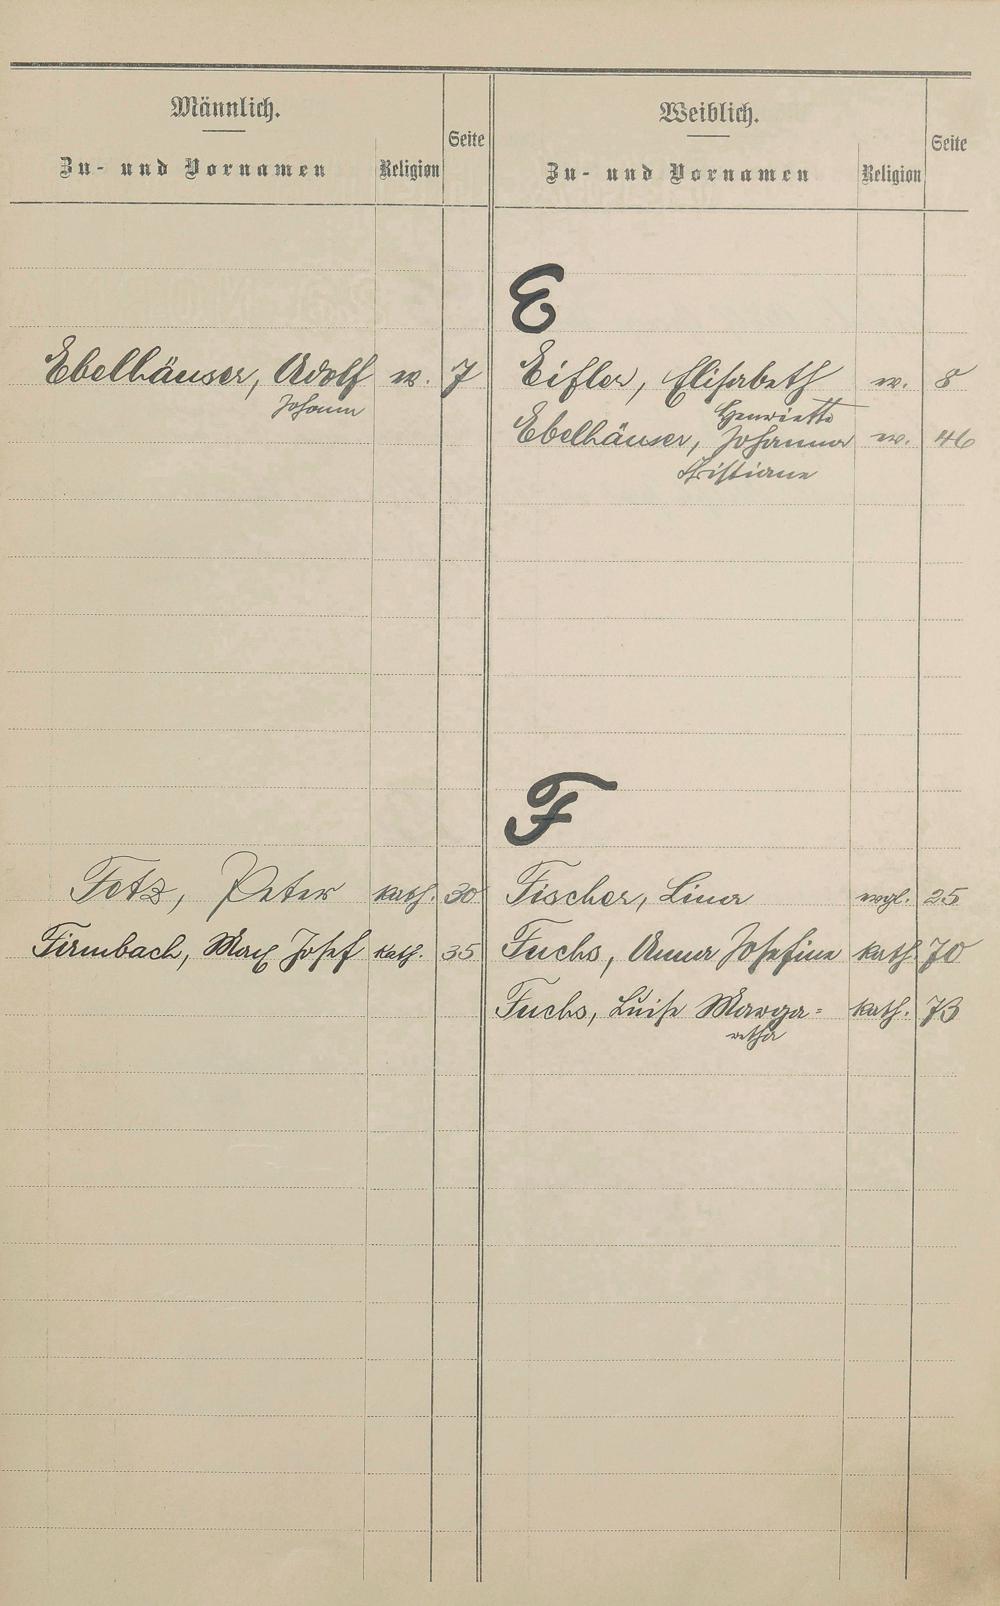 Männlich.
Zu- und Vornamen Religion Seite
Weiblich.
Zu- und Vornamen Religion Seite
E
Ebelhäuser, Adolf ev. 7
Johann
Eifler, Elisabeth ev. 8
Henriette
Ebelhäuser, Johanna ev. 46
Kristiane
F
Fetz, Peter kath. 30
Fischer, Lina evgl. 25
Firmbach, Max Josef kath. 35
Fuchs, Anna Josefine kath. 70
Fuchs, Luise Marga= kath. 73
retha